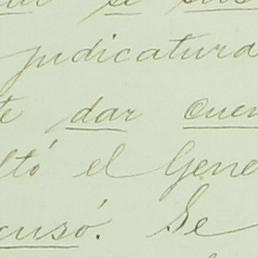 judicatura
te dar cuen
ltó el Gene
cusó. Se